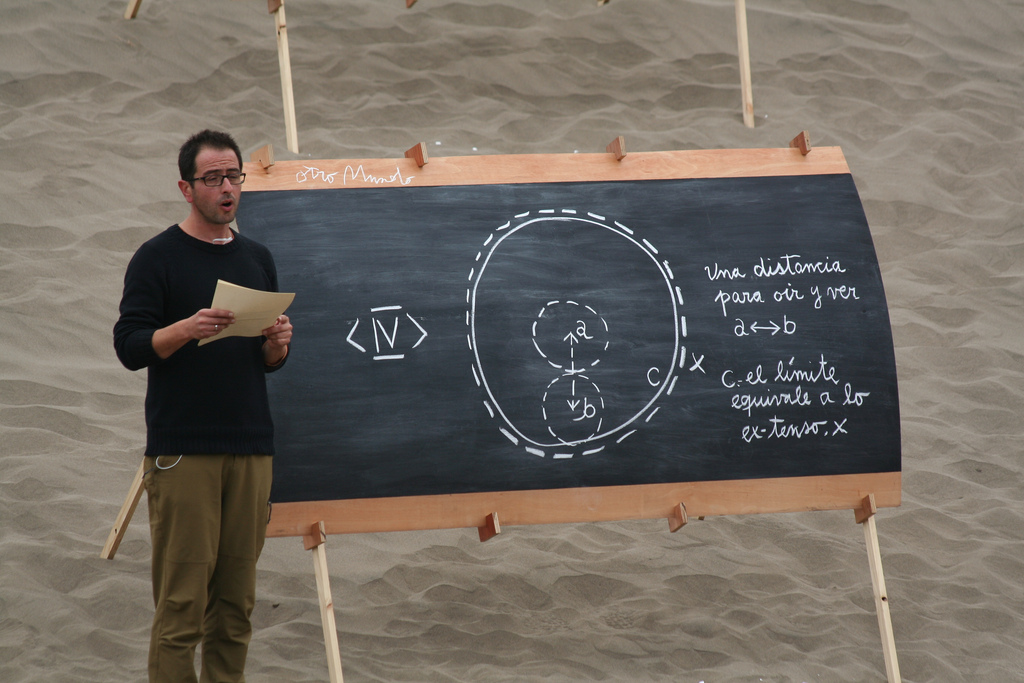 otro Mundo
<IV>
a
b
C
X
Una distancia
para oír y ver
a↔b
C. el límite
equivale a lo
ex-tenso, x